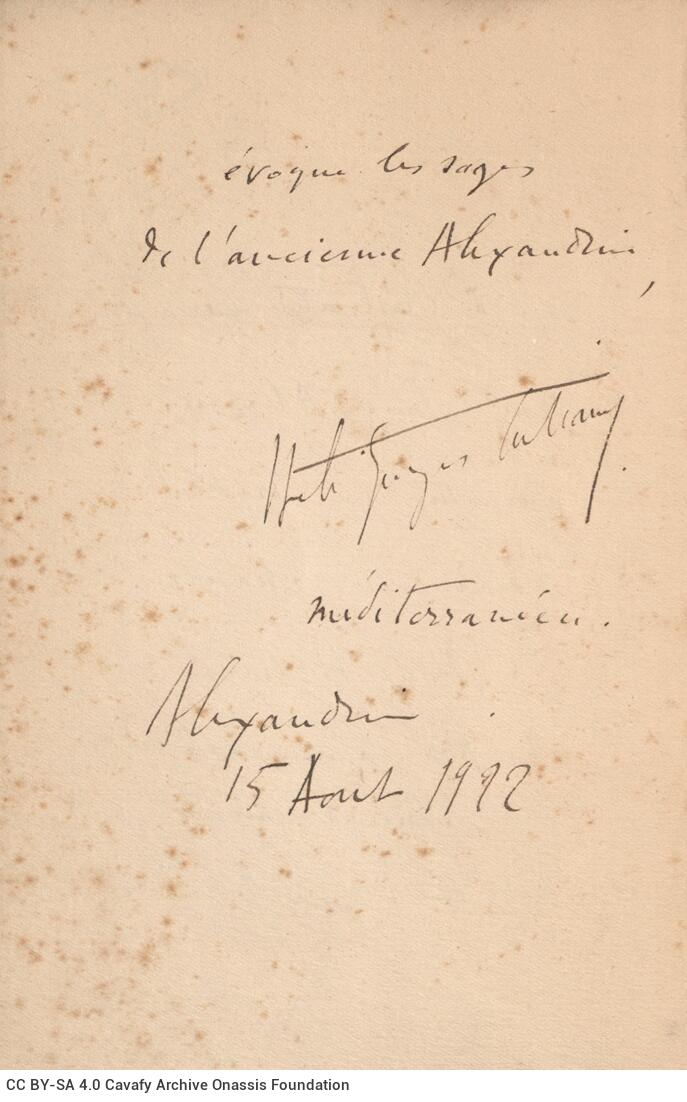 évoque les sages
de l'ancienne Alexandrie,
Georges
méditerranéen.
Alexandrie
15 Aout 1922
CC BY-SA 4.0 Cavafy Archive Onassis Foundation